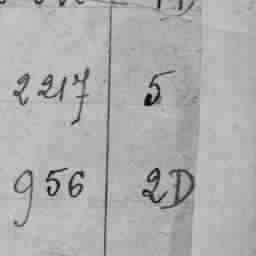 2217 5
956 2D